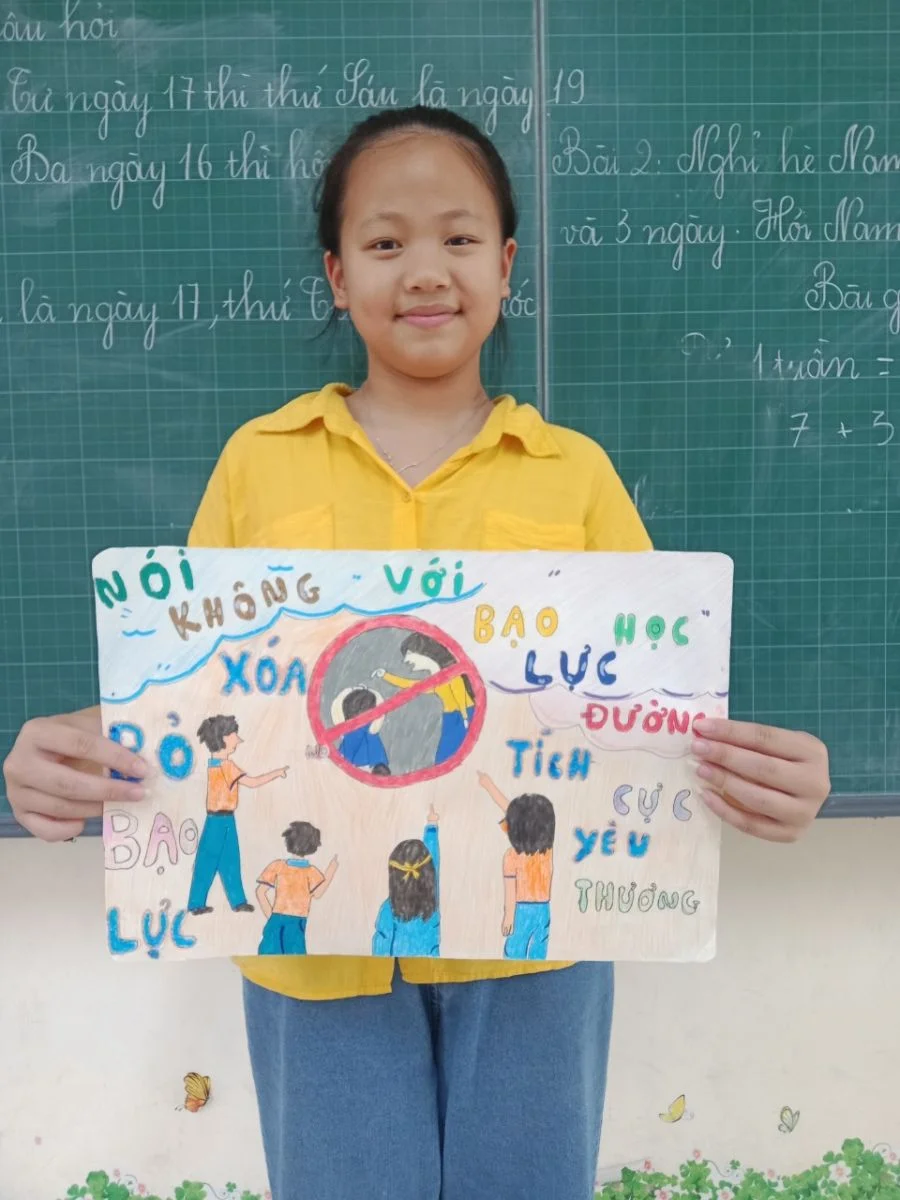 âu hỏi
Tư ngày 17 thì thứ Sáu là ngày 19
Ba ngày 16 thì
là ngày 17, thứ
Bài 2: Nghỉ hè Nam
và 3 ngày. Hỏi Nam
Bài g
1 tuần =
7 + 3
NÓI
KHÔNG VỚI
"BẠO HỌC"
LỰC
ĐƯỜNG
XÓA
BỎ
BẠO
LỰC
TÍCH
CỰC
YÊU
THƯƠNG